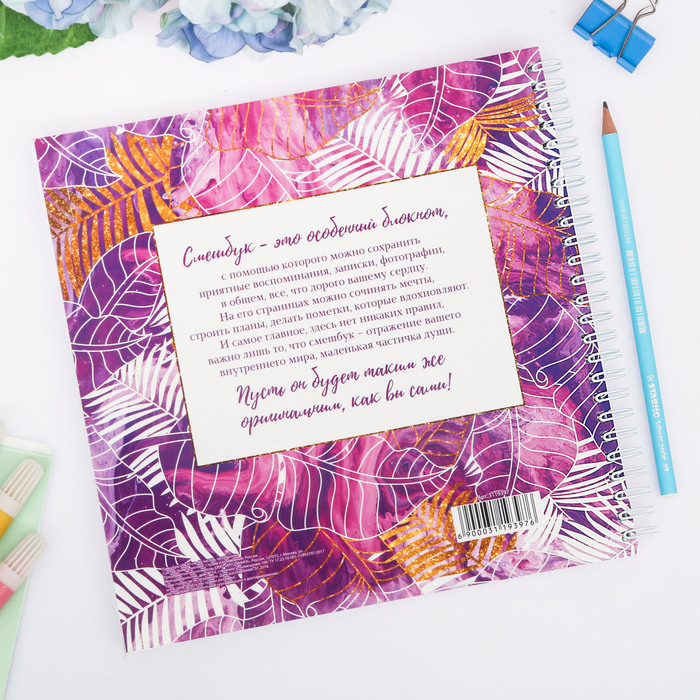 Смешбук – это особенный блокнот,
с помощью которого можно сохранить
приятные воспоминания, записки, фотографии,
в общем, все, что дорого вашему сердцу.
На его страницах можно сочинять мечты,
строить планы, делать пометки, которые вдохновляют.
И самое главное, здесь нет никаких правил,
важно лишь то, что смешбук – отражение вашего
внутреннего мира, маленькая частичка души.
Пусть он будет таким же
оригинальним, как ви сами!
6 900031 193976